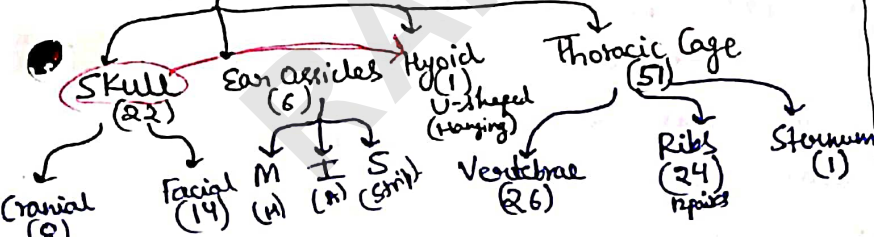 Skull
(22)
Ear ossicles
(6)
Hyoid
(1)
U-shaped
(Hanging)
Thoracic Cage
(51)
Cranial
Facial
(14)
M
(H)
I
(A)
S
Vertebrae
(26)
Ribs
(24)
12 pairs
Sternum
(1)